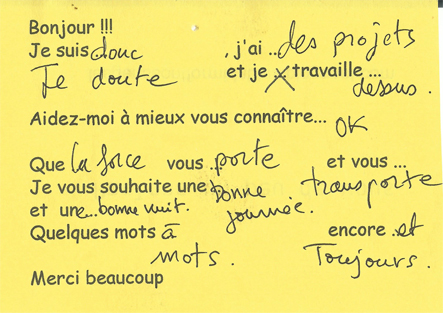 Bonjour !!!
Je suis donc , j'ai ..des projets
Je doute et je .. travaille ... dessus.
Aidez-moi à mieux vous connaître... OK
Que la force vous ..porte et vous ... transporte
Je vous souhaite une bonne journée.
et une...bonne nuit.
Quelques mots à mots. encore ..et Toujours.
Merci beaucoup